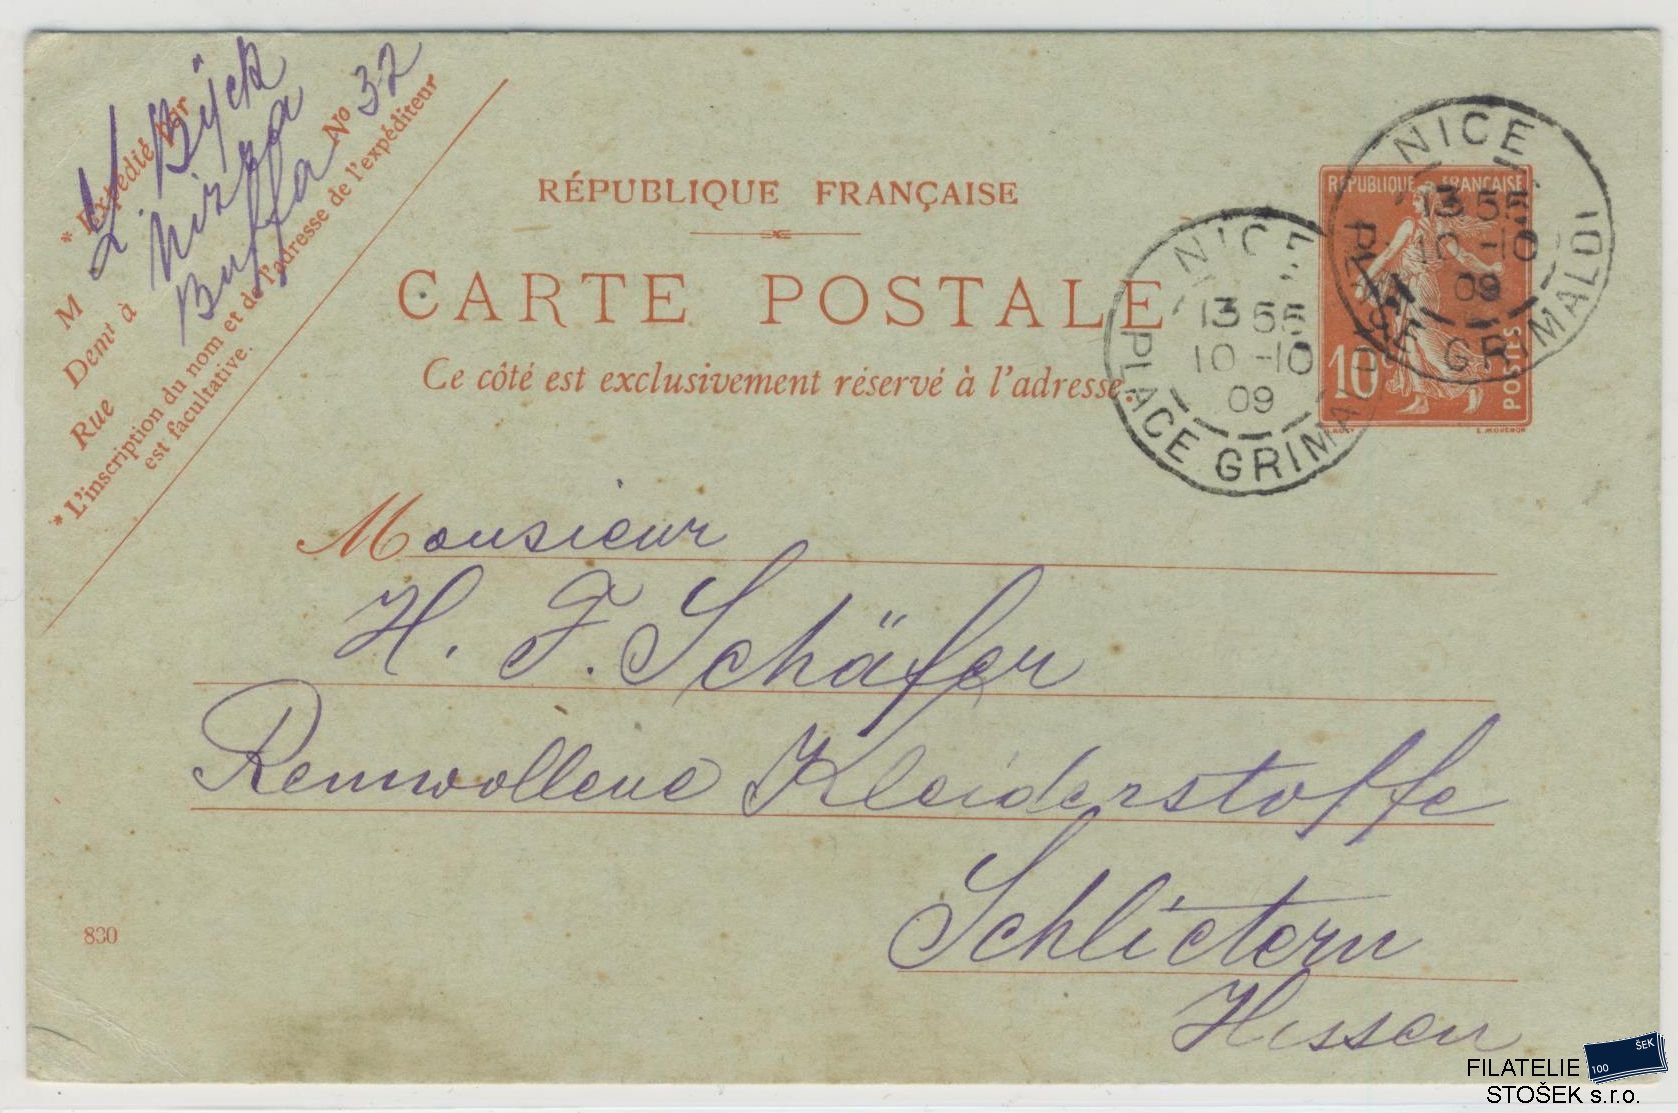 * Expédié par
M L. Bijck
Demt à Nizza
Rue Buffa No 32
* L'inscription du nom et de l'adresse de l'expéditeur
est facultative.
RÉPUBLIQUE FRANÇAISE
CARTE POSTALE
Ce côté est exclusivement réservé à l'adresse.
NICE
13 55
10 -10
09
PLACE GRIMALDI
NICE
13 55
10 -10
09
PLACE GRIMALDI
RÉPUBLIQUE FRANÇAISE
10c
POSTES
E. MOUCHON
Monsieur
H. F. Schäfer
Reinwollene Kleiderstoffe
Schlietern
Hessen
830
FILATELIE
STOŠEK s.r.o.
100 ŠEK